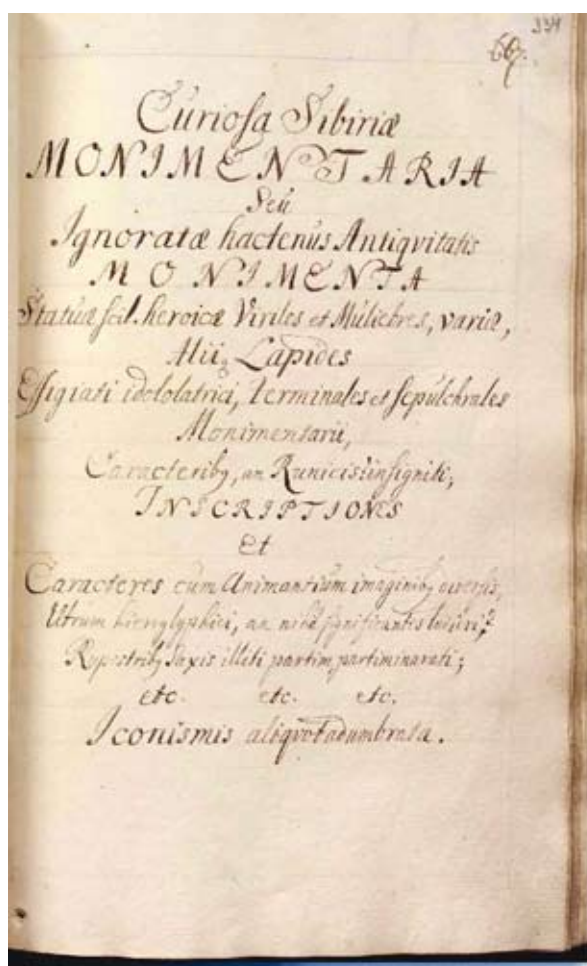 334
667.
Curiosa Sibiriæ
MONIMENTARIA
Seu
Ignoratæ hactenus Antiqvitatis
MONIMENTA
Statuæ scil. heroicæ Viriles et Muliebres, variæ,
Aliiq; Lapides
Effigiati idololatrici, terminales et sepulchrales
Monimentarii,
Caracterib9, an Runicis? insigniti;
INSCRIPTIONES
Et
Caracteres cum Animantium imaginib9 diversis,
Utrum hieroglyphici, an significantis
Rupestrib9 Saxis illiti partim, partim inarati;
etc. etc. etc.
Iconismis aliqvot adumbrata.